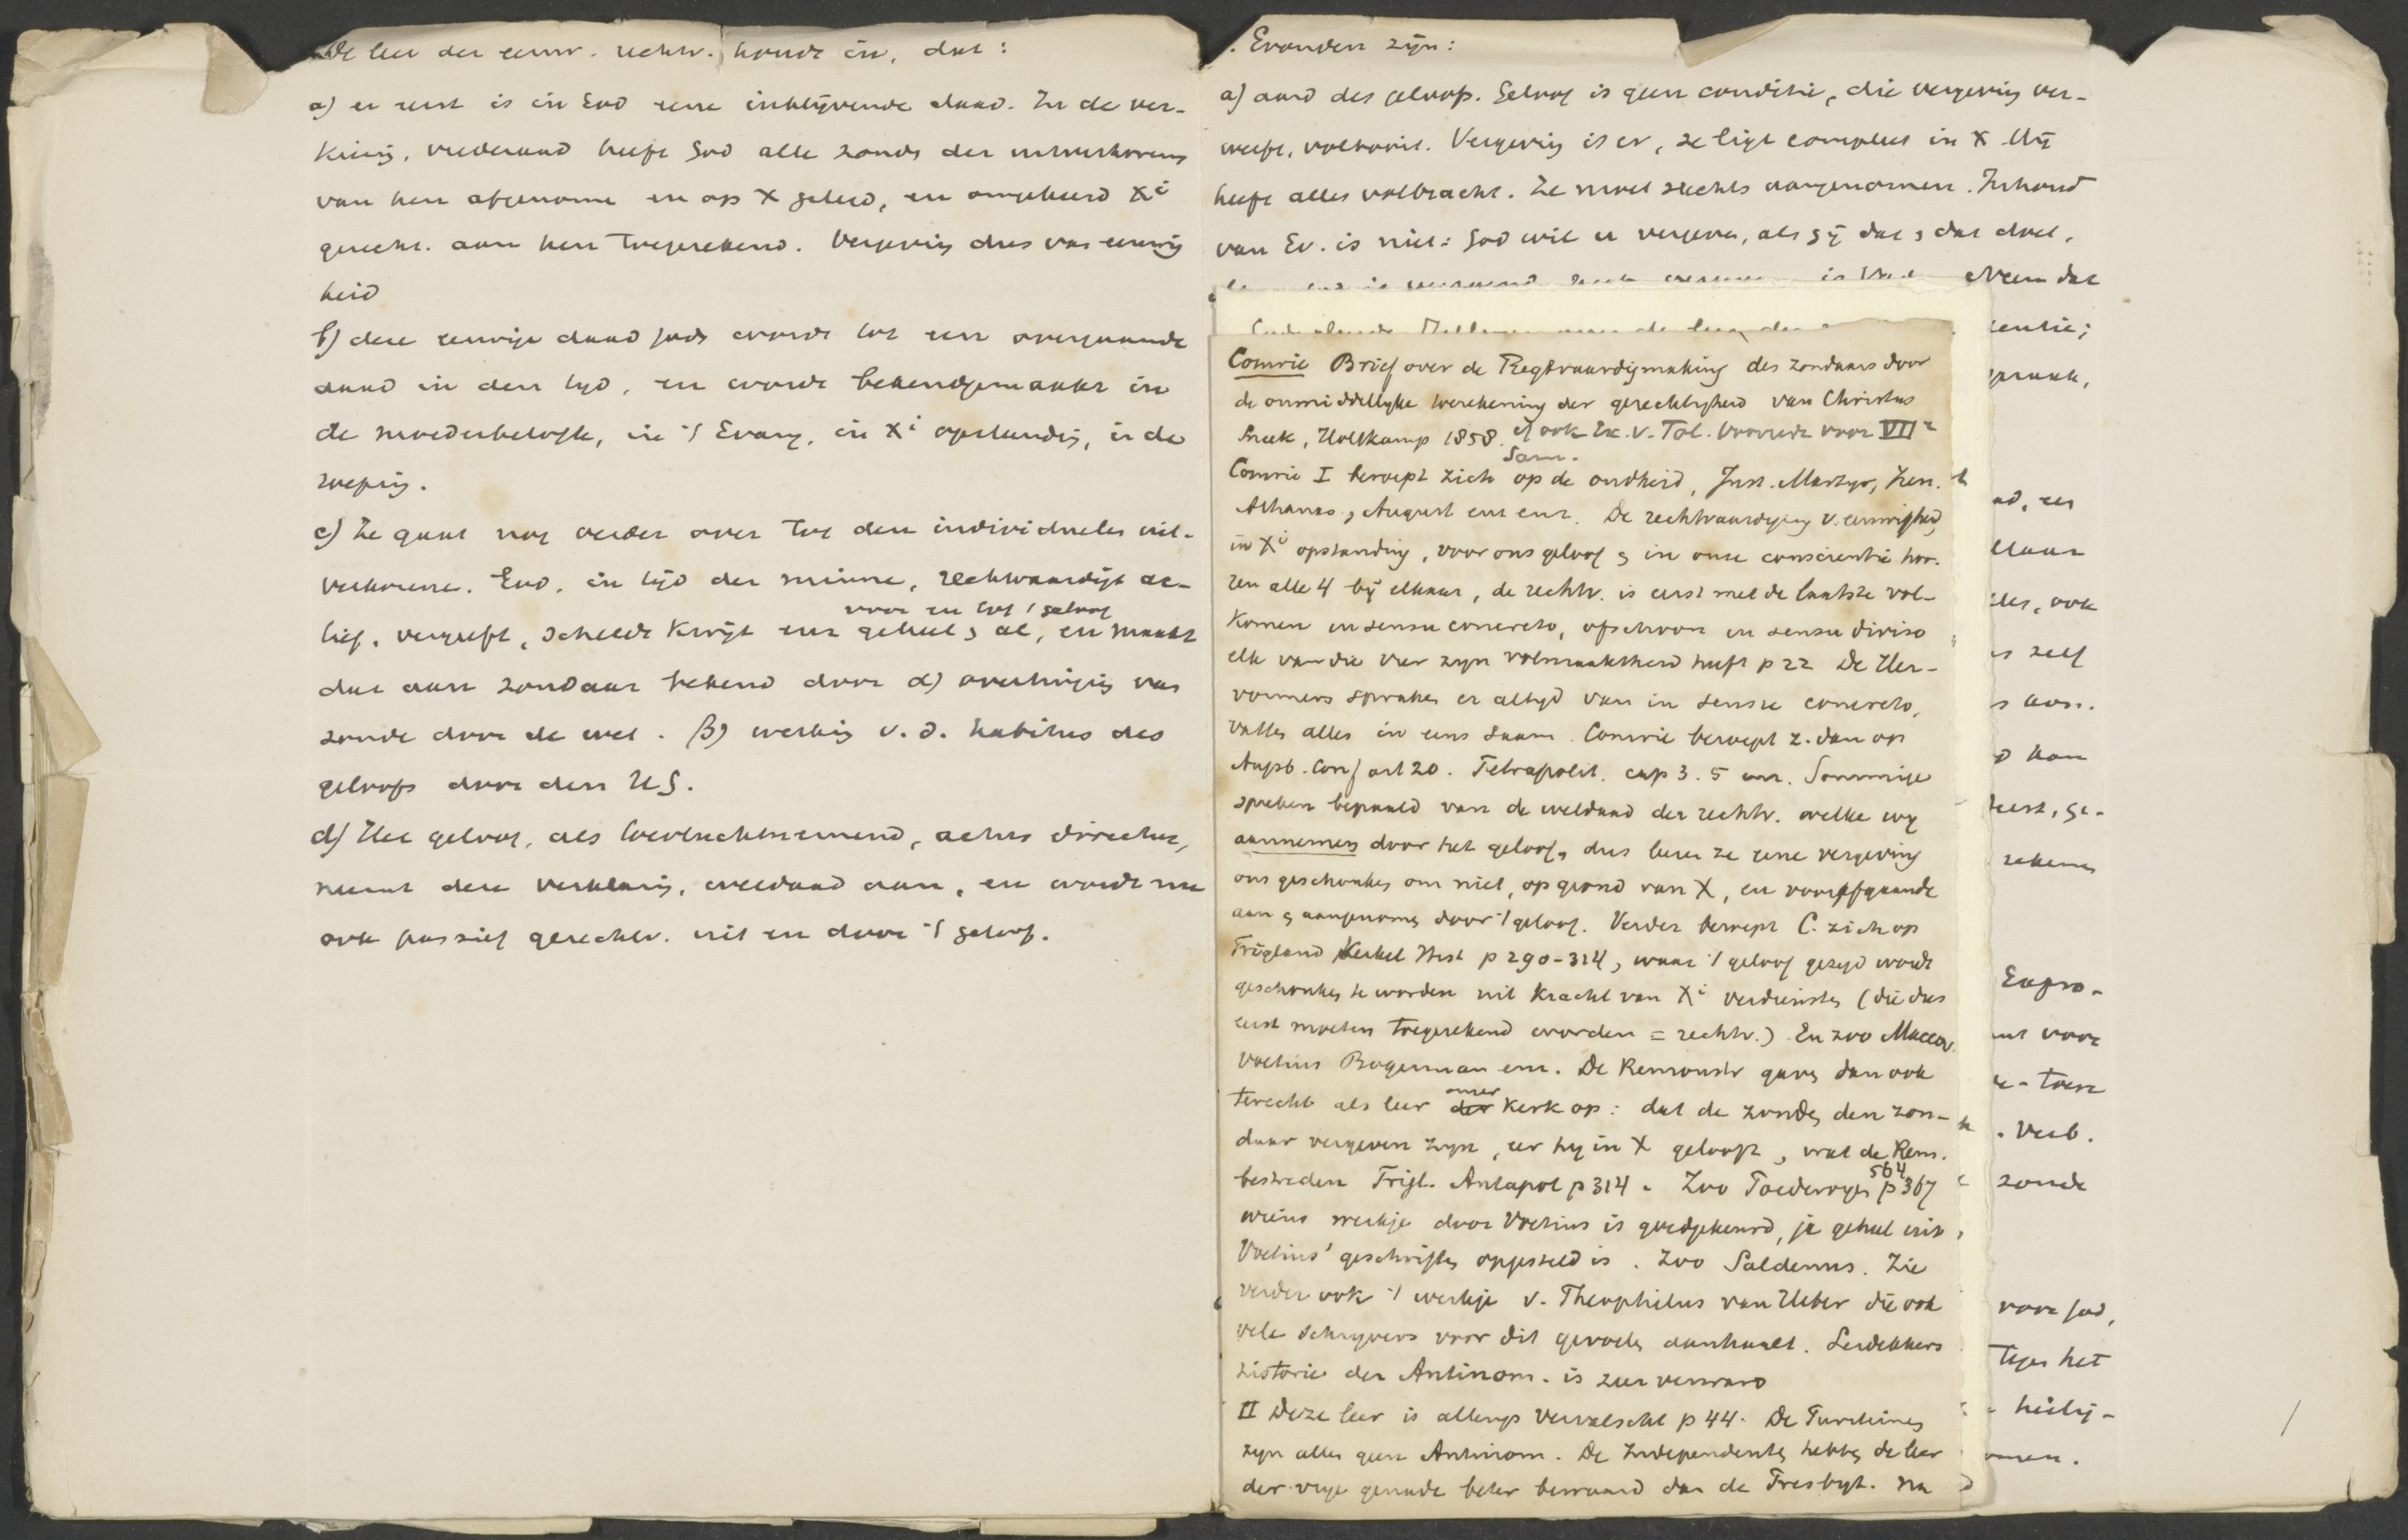 De leer der eeuw. rechtv. houdt in, dat:
a) er eerst is in God eene inblijvende daad. In de ver-
kiezing, vrederaad heeft God alle zonde der uitverkorens
van hen afgenome en op X gelegd, en omgekeerd Xi
gerecht. aan hen toegerekend. Vergeving dus van eeuwig
heid
b) deze eeuwige daad Gods wordt tot een overgaande
daad in den tijd, en wordt bekendgemaakt in
de moederbelofte, in 't Evang. in Xi opstanding, in de
roeping.
c) Ze gaat nog verder over tot den individueelen uit-
verkorene. God, in tijd der minne, rechtvaardigt ac-
voor en tot 't geloof
tief, vergeeft, scheldt kwijt enz geheel & al, en maakt
dat aan zondaar bekend door α) overtuiging van
zonde door de wet. β) werking v. d. habitus des
geloofs door den H G.
d) Het geloof, als toevluchtnemend, actus directus,
neemt deze verklaring, weldaad aan, en wordt nu
ook passief gerechtv. uit en door 't geloof.
. Gronden zijn:
a) aard des geloofs. Geloof is geen conditie, die vergeving ver-
werft, voltooit. Vergeving is er, ze ligt compleet in X Hij
heeft alles volbracht. Ze moet slechts aangenomen. Inhoud
van Ev. is niet: God wil u vergeven, als gij dat & dat doet,
Neem dat
tentie;
spraak,
Comrie Brief over de Regtvaardigmaking des zondaars door
de onmiddellyke toerekening der geregtigheid van Christus
Sneek, Holtkamp 1858. cf ook Ex. v. Tol. Voorrede voor VIIe
Sam.
Comrie I beroept zich op de oudheid, Just. Martyr, Iren.
Athanas., August enz enz. De rechtvaardiging v. eeuwigheid,
in Xi opstanding, voor ons geloof & in onze conscientie hoo-
ren alle 4 bij elkaar, de rechtv. is eerst met de laatste vol-
komen in sensu concreto, ofschoon in sensu diviso
elk van die vier zyn volmaaktheid heeft p 22 De Her-
vormers spraken er altyd van in sensu concreto,
vatten alles in eens saam. Comrie beroept z. dan op
Augsb. Conf art 20. Tetrapolit. cap 3. 5 enz. Sommige
spreken bepaald van de weldaad der rechtv. welke wy
aannemen door het geloof, dus leeren ze eene vergeving
ons geschonken om niet, op grond van X, en voorafgaande
aan & aangenomen door 't geloof. Verder beroept C. zich op
Trigland Kerkel Hist p 290-314, waar 't geloof gezegd wordt
geschonken te worden uit kracht van Xi verdiensten (die dus
eerst moeten toegerekend worden = rechtv.) En zoo Maccov.
Voetius Bogerman enz. De Remonstr gaven dan ook
onzer
terecht als leer der kerk op: dat de zonden den zon-
daar vergeven zyn, eer hy in X gelooft, wat de Rem.
564
bestreden Trigl. Antapol p 314. Zoo p 367
wiens werkje door Voetius is goedgekeurd, ja geheel uit
Voetius' geschriften opgesteld is. Zoo Saldenus. Zie
verder ook 't werkje v. Theophilus van Heber die ook
vele schryvers voor dit gevoelen aanhaalt. Leidekkers
historie der Antinom. is zeer verward
II Deze leer is allengs vervalscht p 44. De
zyn alles geen Antinom. De Independenten hebben de leer
der vrye genade beter bewaard dan de Presbyt. Na
ad, een
elkaar
ook
zelf
aan.
kan
ge-
rekenen
voor
. Verb.
zonde
voor God,
Tegen het
heilig-
omen.